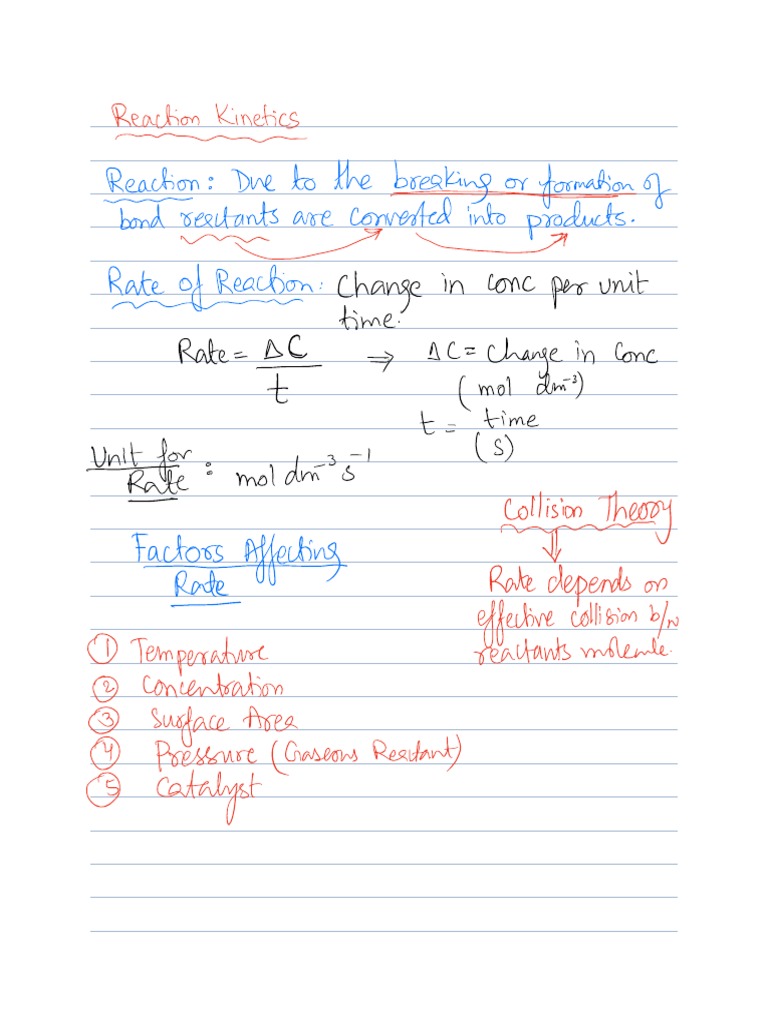 Reaction Kinetics
Reaction: Due to the breaking or formation of
bond reactants are converted into products.
Rate of Reaction: Change in conc per unit
time.
Rate = ΔC / t ⇒ ΔC = change in conc
(mol dm⁻³)
t = time
(s)
Unit for
Rate : mol dm⁻³ s⁻¹
Collision Theory
Factors Affecting
Rate
Rate depends on
effective collision b/n
reactants molecule.
① Temperature
② Concentration
③ Surface Area
④ Pressure (Gaseous Reactant)
⑤ Catalyst